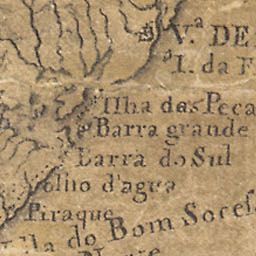 V.ª DE
I. da F
Ilha das Peca
Barra grande
Barra do Sul
olho d'agua
Piraque
Villa do Bom Soces